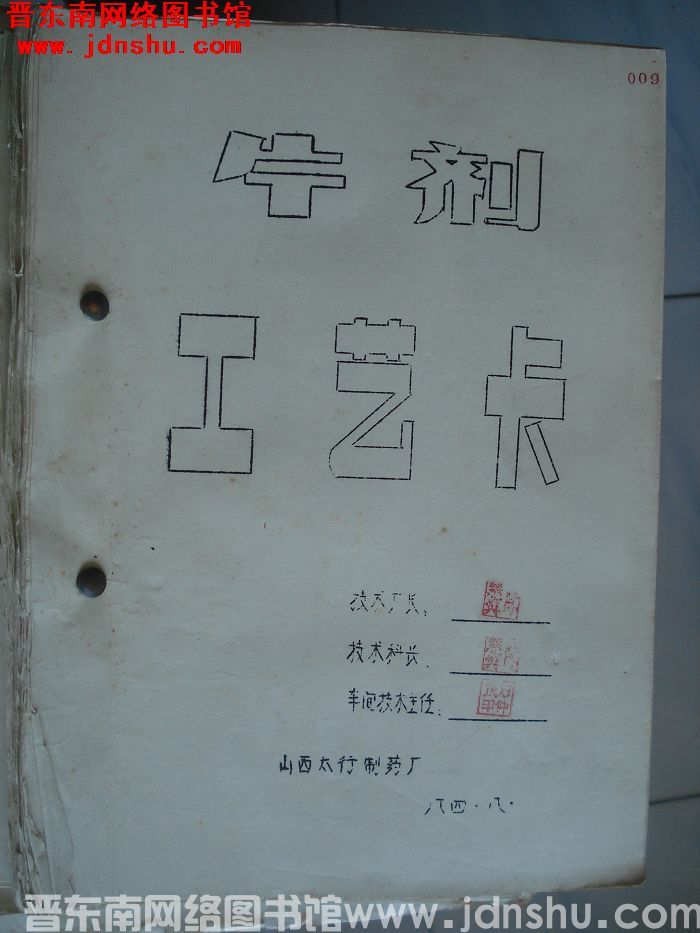 晋东南网络图书馆
www.jdnshu.com
009
片剂
工艺卡
技术厂长:
技术科长:
车间技术主任:
山西太行制药厂
八四·八·
晋东南网络图书馆www.jdnshu.com